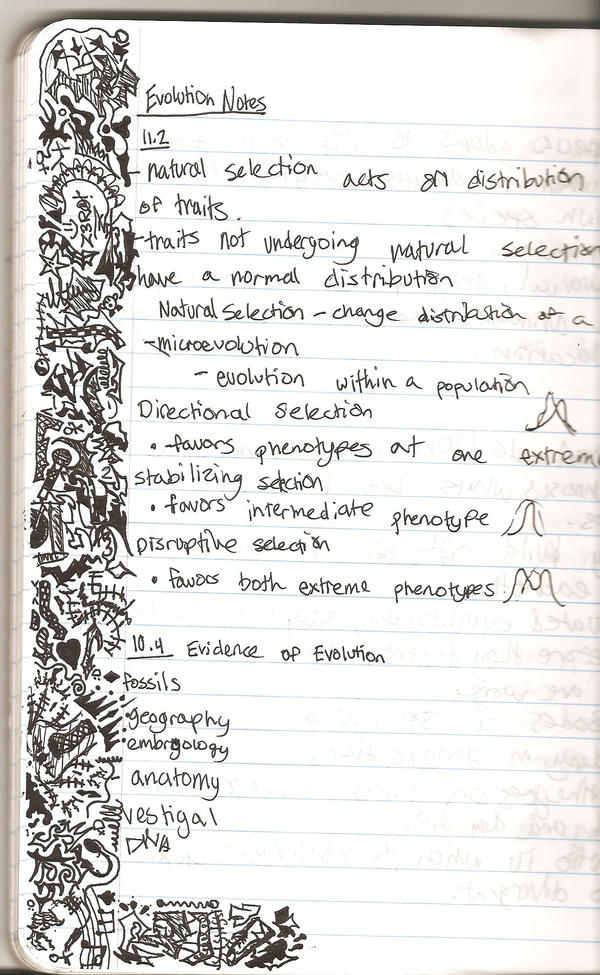 Evolution Notes
11.2
- natural selection acts on distribution
of traits.
- traits not undergoing natural selection
have a normal distribution
Natural Selection - change distribution of a
- microevolution
- evolution within a population
Directional Selection
• favors phenotypes at one extreme
stabilizing selection
• favors intermediate phenotype
Disruptive selection
• favors both extreme phenotypes
10.4 Evidence of Evolution
fossils
geography
embryology
anatomy
vestigal
DNA